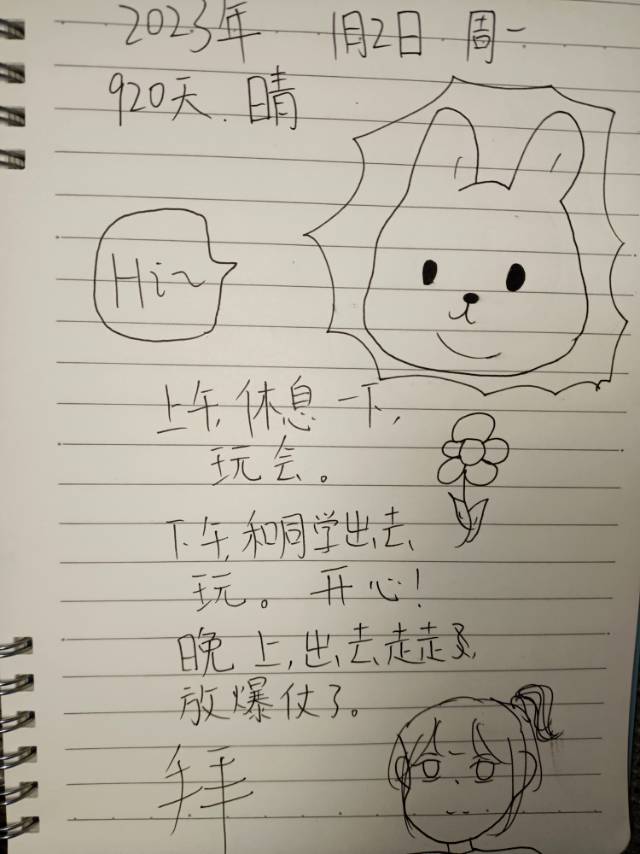 2023年 1月2日 周一
920天. 晴
Hi~
上午,休息一下,
玩会。
下午,和同学出去
玩。开心!
晚上,出去走走
放爆仗了。
拜